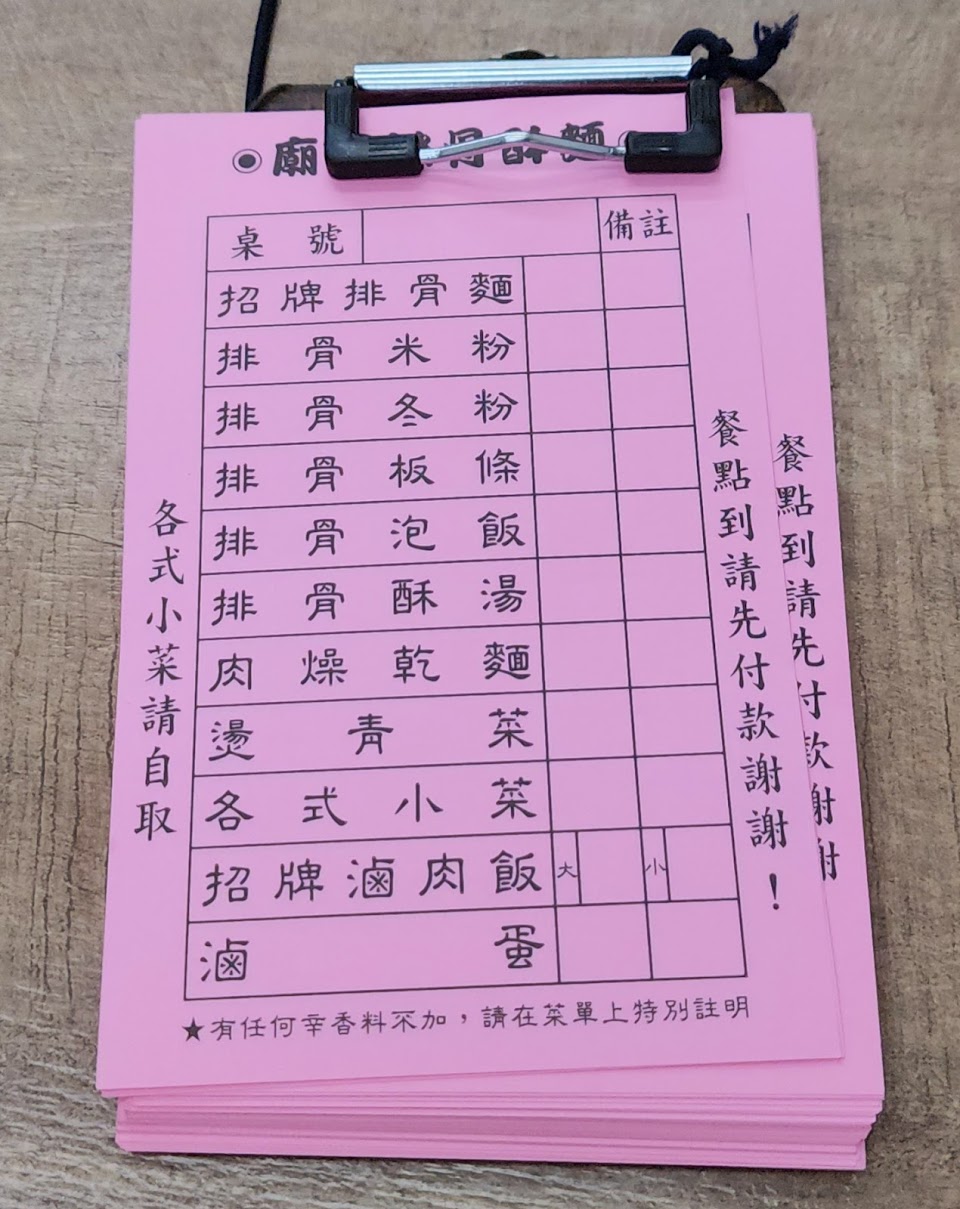 ◉廟骨酥麵
桌號 備註
招牌排骨麵
排骨米粉
排骨冬粉
排骨板條
排骨泡飯
排骨酥湯
肉燥乾麵
燙青菜
各式小菜
招牌滷肉飯 大 小
滷蛋
★有任何辛香料不加，請在菜單上特別註明
各式小菜請自取
餐點到請先付款謝謝！
餐點到請先付款謝謝